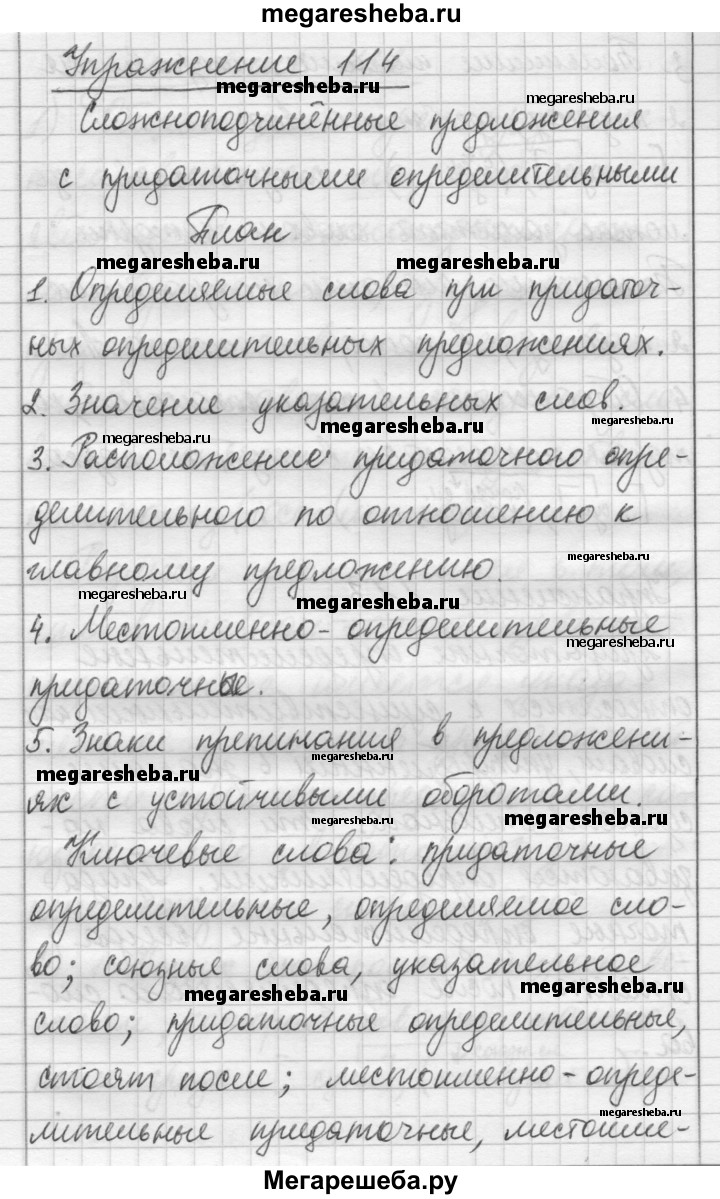 megaresheba.ru
Упражнение 114
megaresheba.ru
megaresheba.ru
Сложноподчинённые предложения
с придаточными определительными
План
megaresheba.ru megaresheba.ru
1. Определяемые слова при придаточ-
ных определительных предложениях.
2. Значение указательных слов.
megaresheba.ru megaresheba.ru megaresheba.ru
3. Расположение придаточного опре-
делительного по отношению к
главному предложению.
megaresheba.ru
megaresheba.ru megaresheba.ru
4. Местоименно-определительные
придаточные.
5. Знаки препинания в предложени-
megaresheba.ru megaresheba.ru
ях с устойчивыми оборотами.
megaresheba.ru megaresheba.ru
Ключевые слова: придаточные
определительные, определяемое сло-
во; союзные слова, указательное
megaresheba.ru megaresheba.ru
слово; придаточные определительные,
стоят после; местоименно-опреде-
megaresheba.ru
лительные придаточные, местоиме-
Мегарешеба.ру